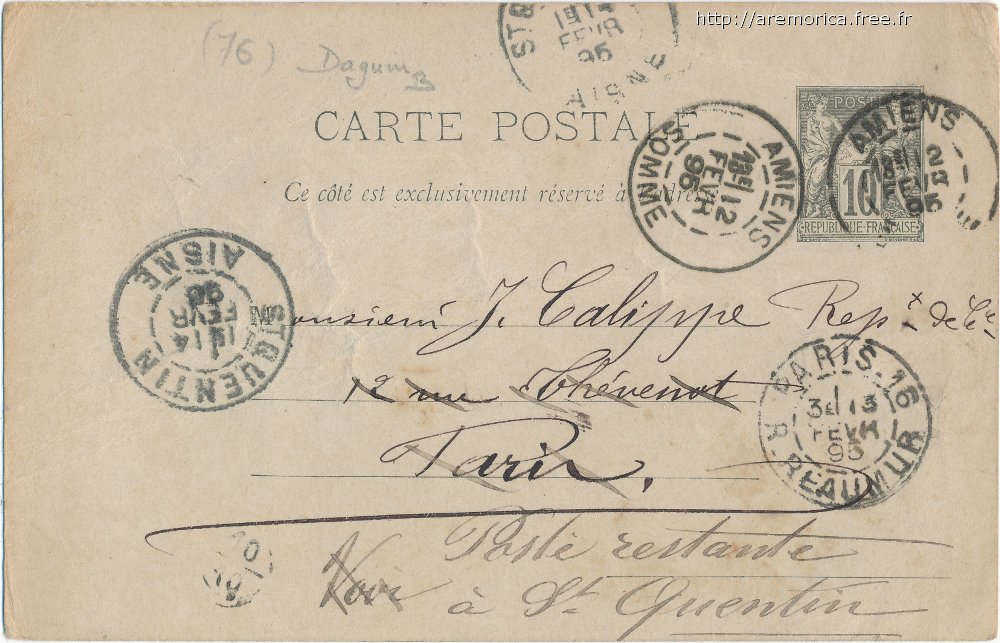 http://aremorica.free.fr
(76) Daguin B
ST Q
1E 14
FEVR
95
AISNE
CARTE POSTALE
Ce côté est exclusivement réservé à l'adresse
AMIENS
12
FEVR
95
SOMME
POSTES
AMIENS
10
REPUBLIQUE FRANÇAISE
AISNE
14
FEVR
95
ST QUENTIN
Monsieur J. Calippe Repx de Cce
12 rue Thévenot
Paris,
PARIS.16
3E 13
FEVR
95
R. REAUMUR
Poste restante
Voir à St Quentin